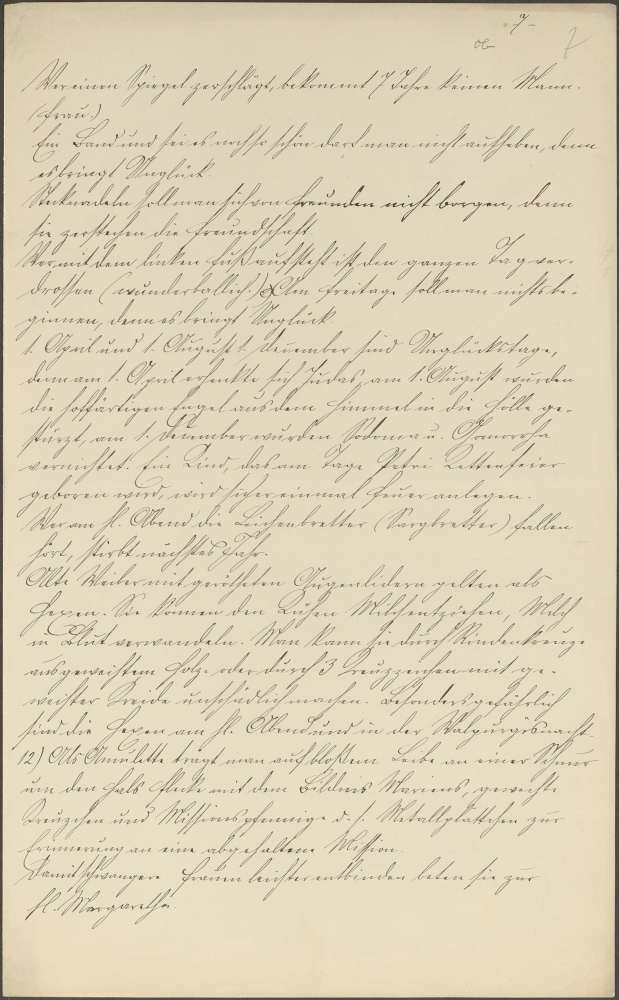 - 7 -
7
Wer einen Spiegel zerschlägt, bekommt 7 Jahre keinen Mann.
(Frau.)
Ein Band und sei es noch so schön darf man nicht aufheben, denn
es bringt Unglück.
Stecknadeln soll man sich von Freunden nicht borgen, denn
sie zerstechen die Freundschaft.
Wer mit dem linken Fuß aufsteht ist den ganzen Tag ver-
drossen (wunderballich.) Am Freitage soll man nichts be-
ginnen, denn es bringt Unglück.
1. April und 1. August 1. Dezember sind Unglückstage,
denn am 1. April erhenkte sich Judas, am 1. August wurden
die hoffärtigen Engel aus dem Himmel in die Hölle ge-
stürzt, am 1. Dezember wurden Sodoma u. Gomorrha
vernichtet. Ein Kind, das am Tage Petri Kettenfeier
geboren wird, wird sicher einmal Feuer anlegen.
Wer am hl. Abend die Leichenbretter (Sargbretter) fallen
hört, stirbt nächstes Jahr.
Alte Weiber mit geröteten Augenlidern gelten als
Hexen. Sie können den Kühen Milch entziehen, Milch
in Blut verwandeln. Man kann sie durch Rindenkreuze
aus geweihtem Holz oder durch 3 Kreuzzeichen mit ge-
weihter Kreide unschädlich machen. Besonders gefährlich
sind die Hexen am hl. Abend und in der Walpurgisnacht.
12) Als Amulette trägt man auf bloßem Leibe an einer Schnur
um den Hals Flecke mit dem Bildnis Mariens, geweihte
Kreuzchen und Missionspfennige d. h. Metallplättchen zur
Erinnerung an eine abgehaltene Mission.
Damit schwangere Frauen leichter entbinden beten sie zur
hl. Margaretha.